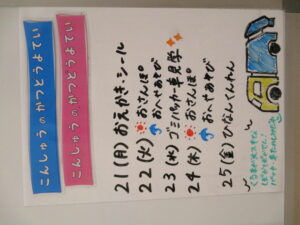 こんしゅうのかつどうよてい
こんしゅうのかつどうよてい
21(月)おえかき・シール
22(火)おさんぽ。
おへやあそび
23(水)ゴミパッカー車見学
24(木)おさんぽ。
おへやあそび
25(金)ひなんくんれん